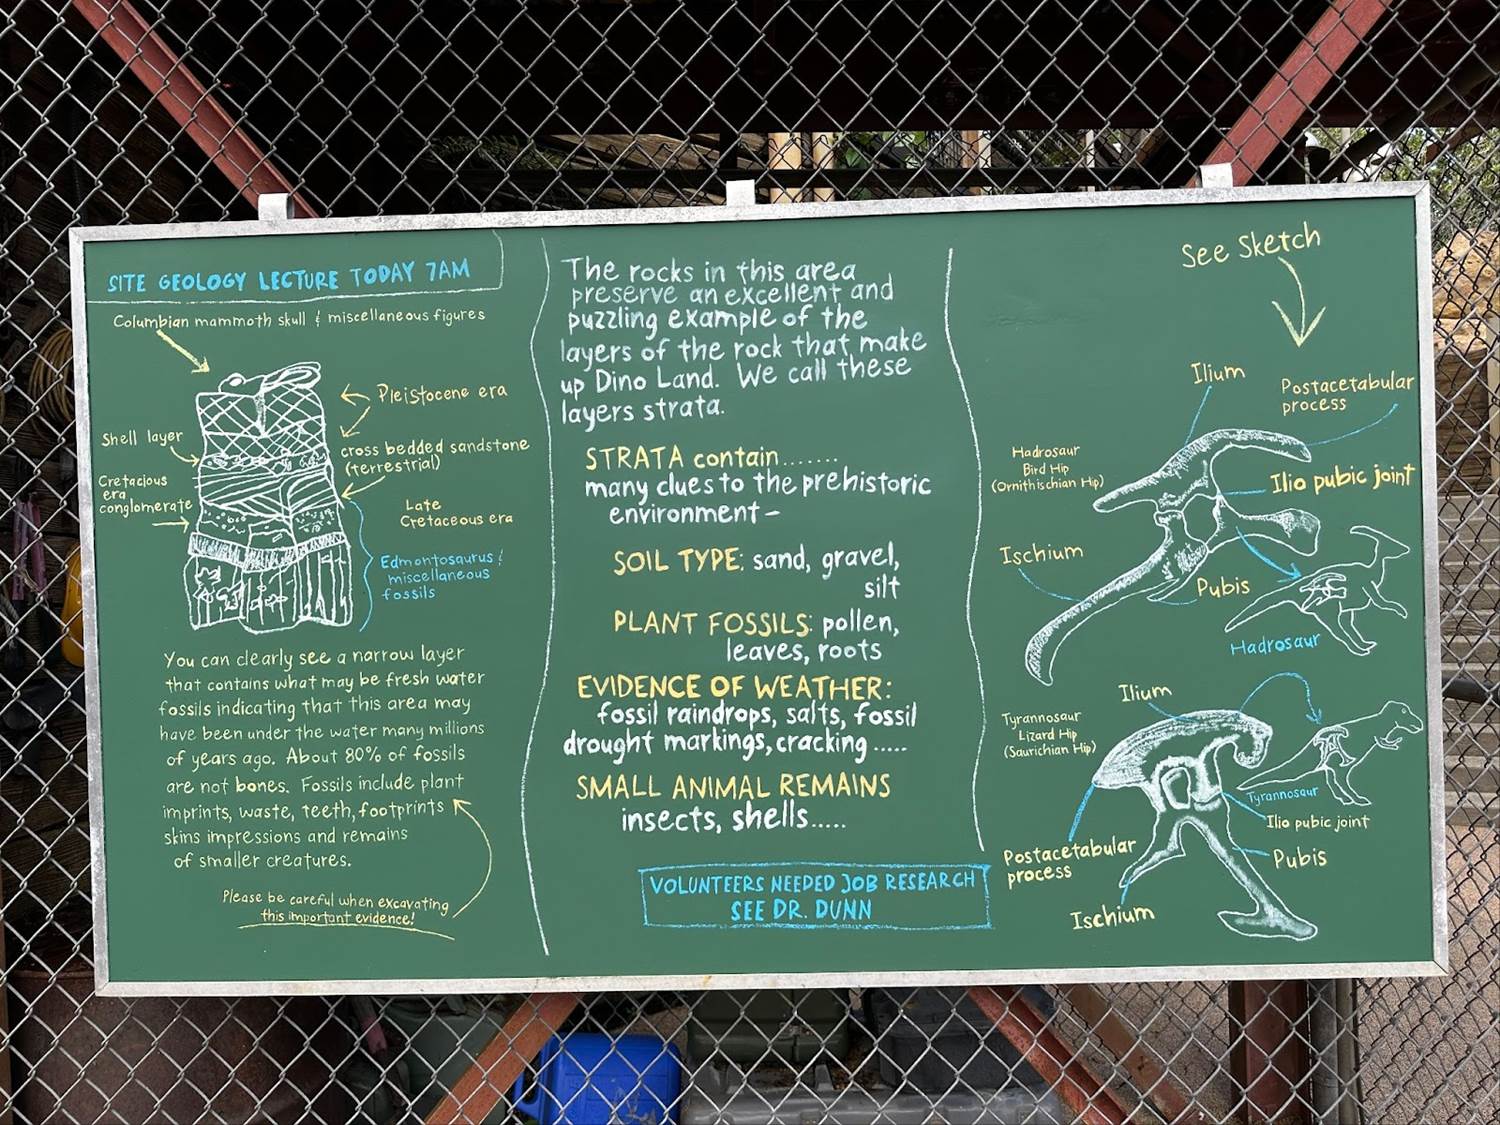 SITE GEOLOGY LECTURE TODAY 7AM
Columbian mammoth skull & miscellaneous figures
Pleistocene era
Shell layer
cross bedded sandstone
(terrestrial)
Cretacious
era
conglomerate
Late
Cretaceous era
Edmontosaurus &
miscellaneous
fossils
You can clearly see a narrow layer
that contains what may be fresh water
fossils indicating that this area may
have been under the water many millions
of years ago. About 80% of fossils
are not bones. Fossils include plant
imprints, waste, teeth, footprints
skins impressions and remains
of smaller creatures.
Please be careful when excavating
this important evidence!
The rocks in this area
preserve an excellent and
puzzling example of the
layers of the rock that make
up Dino Land. We call these
layers strata.
STRATA contain.......
many clues to the prehistoric
environment-
SOIL TYPE: sand, gravel,
silt
PLANT FOSSILS: pollen,
leaves, roots
EVIDENCE OF WEATHER:
fossil raindrops, salts, fossil
drought markings, cracking.....
SMALL ANIMAL REMAINS
insects, shells.....
VOLUNTEERS NEEDED JOB RESEARCH
SEE DR. DUNN
See Sketch
Ilium
Postacetabular
process
Hadrosaur
Bird Hip
(Ornithischian Hip)
Ilio pubic joint
Ischium
Pubis
Hadrosaur
Ilium
Tyrannosaur
Lizard Hip
(Saurichian Hip)
Tyrannosaur
Ilio pubic joint
Postacetabular
process
Pubis
Ischium